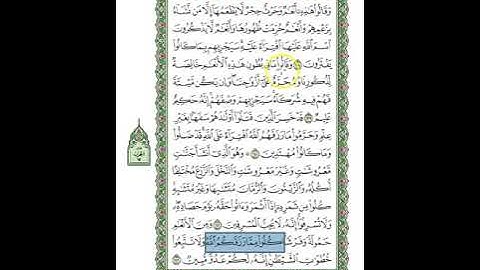 وَقَالُوا۟ هَـٰذِهِۦٓ أَنْعَـٰمٌ وَحَرْثٌ حِجْرٌ لَّا يَطْعَمُهَآ إِلَّا مَن نَّشَآءُ
بِزَعْمِهِمْ وَأَنْعَـٰمٌ حُرِّمَتْ ظُهُورُهَا وَأَنْعَـٰمٌ لَّا يَذْكُرُونَ
ٱسْمَ ٱللَّهِ عَلَيْهَا ٱفْتِرَآءً عَلَيْهِ سَيَجْزِيهِم بِمَا كَانُوا۟
يَفْتَرُونَ وَقَالُوا۟ مَا فِى بُطُونِ هَـٰذِهِ ٱلْأَنْعَـٰمِ خَالِصَةٌ
لِّذُكُورِنَا وَمُحَرَّمٌ عَلَىٰٓ أَزْوَٰجِنَا وَإِن يَكُن مَّيْتَةً
فَهُمْ فِيهِ شُرَكَآءُ سَيَجْزِيهِمْ وَصْفَهُمْ إِنَّهُۥ حَكِيمٌ
عَلِيمٌ قَدْ خَسِرَ ٱلَّذِينَ قَتَلُوٓا۟ أَوْلَـٰدَهُمْ سَفَهًۢا بِغَيْرِ
عِلْمٍ وَحَرَّمُوا۟ مَا رَزَقَهُمُ ٱللَّهُ ٱفْتِرَآءً عَلَى ٱللَّهِ قَدْ ضَلُّوا۟
وَمَا كَانُوا۟ مُهْتَدِينَ وَهُوَ ٱلَّذِىٓ أَنشَأَ جَنَّـٰتٍ
مَّعْرُوشَـٰتٍ وَغَيْرَ مَعْرُوشَـٰتٍ وَٱلنَّخْلَ وَٱلزَّرْعَ مُخْتَلِفًا
أُكُلُهُۥ وَٱلزَّيْتُونَ وَٱلرُّمَّانَ مُتَشَـٰبِهًا وَغَيْرَ مُتَشَـٰبِهٍ
كُلُوا۟ مِن ثَمَرِهِۦٓ إِذَآ أَثْمَرَ وَءَاتُوا۟ حَقَّهُۥ يَوْمَ حَصَادِهِۦ
وَلَا تُسْرِفُوٓا۟ إِنَّهُۥ لَا يُحِبُّ ٱلْمُسْرِفِينَ وَمِنَ ٱلْأَنْعَـٰمِ
حَمُولَةً وَفَرْشًا كُلُوا۟ مِمَّا رَزَقَكُمُ ٱللَّهُ وَلَا تَتَّبِعُوا۟
خُطُوَٰتِ ٱلشَّيْطَـٰنِ إِنَّهُۥ لَكُمْ عَدُوٌّ مُّبِينٌ